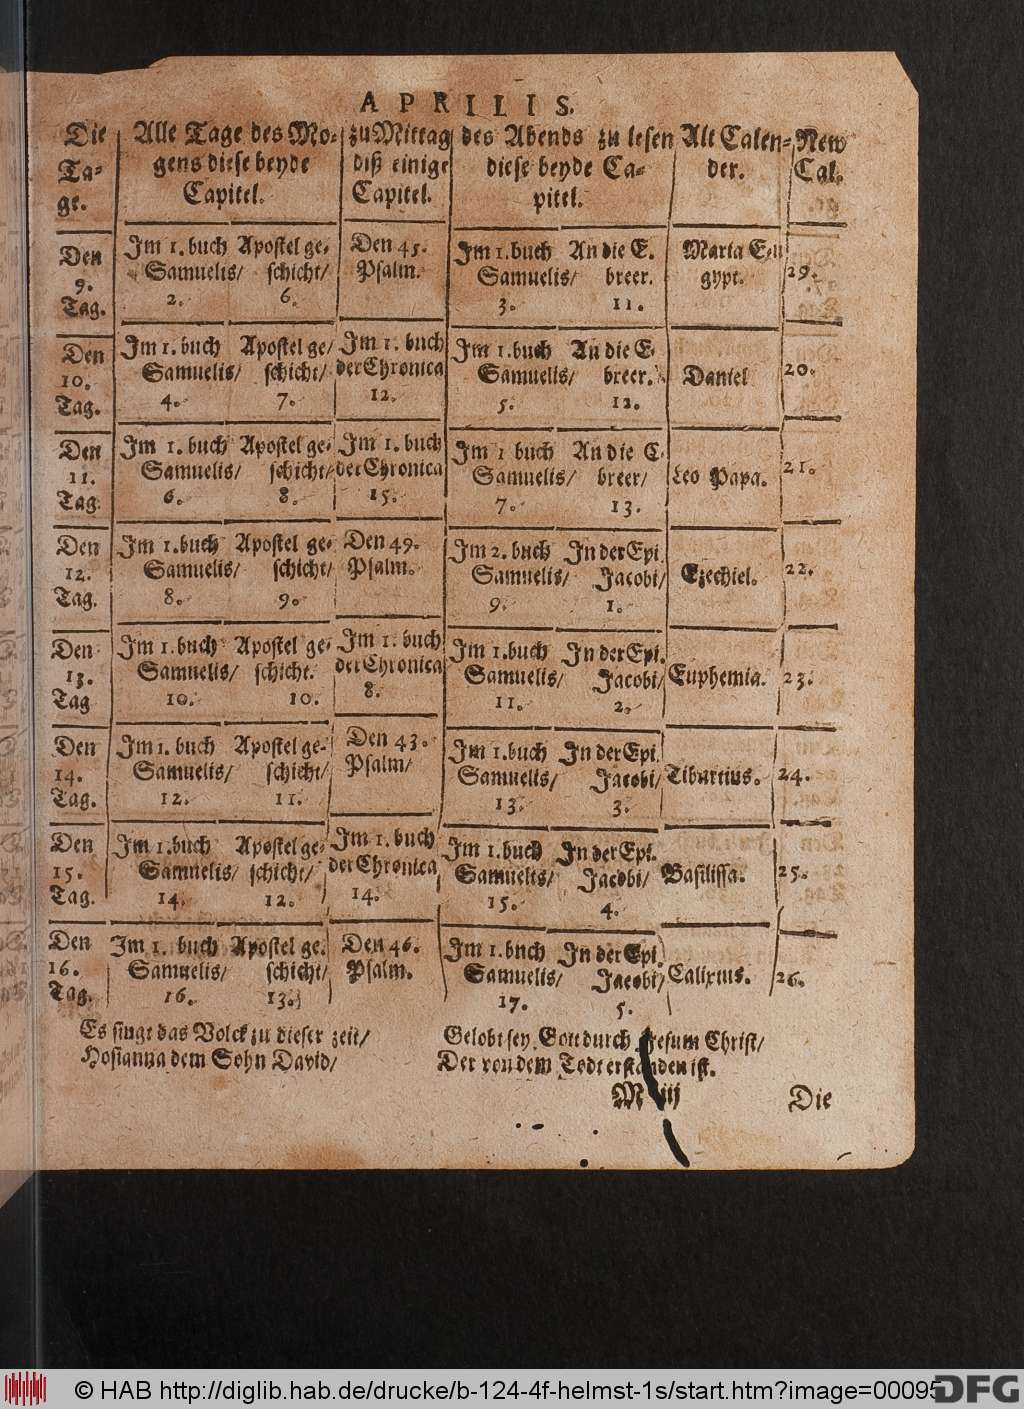 APRILIS.
Die Alle Tage des Mo- zu Mittag des Abends zu lesen Alt Calen- New
Ta- gens diese beyde diß einige diese beyde Ca- der. Cal.
ge. Capitel. Capitel. pitel.
Den Im 1. buch Apostel ge- Den 45. Im 1. buch An die E. Maria E-
9. Samuelis/ schicht/ Psalm. Samuelis/ breer. gypt. 29.
Tag. 2. 6. 3. 11.
Den Im 1. buch Apostel ge/ Im 1. buch Im 1. buch An die E-
10. Samuelis/ schicht/ der Chronica Samuelis/ breer. Daniel 20.
Tag. 4. 7. 12. 5. 12.
Den Im 1. buch Apostel ge- Im 1. buch Im 1 buch An die E-
11. Samuelis/ schicht/ der Chronica Samuelis/ breer/ Leo Papa. 21.
Tag. 6. 8. 15. 7. 13.
Den Im 1. buch Apostel ge- Den 49. Im 2. buch In der Epi.
12. Samuelis/ schicht/ Psalm. Samuelis/ Jacobi/ Ezechiel. 22.
Tag. 8. 9. 9. 1.
Den Im 1. buch Apostel ge- Im 1. buch Im 1. buch In der Epi.
13. Samuelis/ schicht. der Chronica Samuelis/ Jacobi/ Euphemia. 23.
Tag 10. 10. 8. 11. 2.
Den Im 1. buch Apostel ge- Den 43. Im 1. buch In der Epi.
14. Samuelis/ schicht/ Psalm/ Samuelis/ Jacobi/ Tiburtius. 24.
Tag. 12. 11. 13. 3.
Den Im 1. buch Apostel ge- Im 1. buch Im 1. buch In der Epi.
15. Samuelis/ schicht/ der Chronica Samuelis/ Jacobi/ Basilissa. 25.
Tag. 14. 12. 14. 15. 4.
Den Im 1. buch Apostel ge. Den 46. Im 1. buch In der Epi.
16. Samuelis/ schicht/ Psalm. Samuelis/ Jacobi/ Calixtus. 26.
Tag. 16. 13. 17. 5.
Es singt das Volck zu dieser zeit/
Hosianna dem Sohn David/
Gelobt sey Gott durch Jesum Christ/
Der von dem Todt erstanden ist.
M iij Die
© HAB http://diglib.hab.de/drucke/b-124-4f-helmst-1s/start.htm?image=00095
DFG